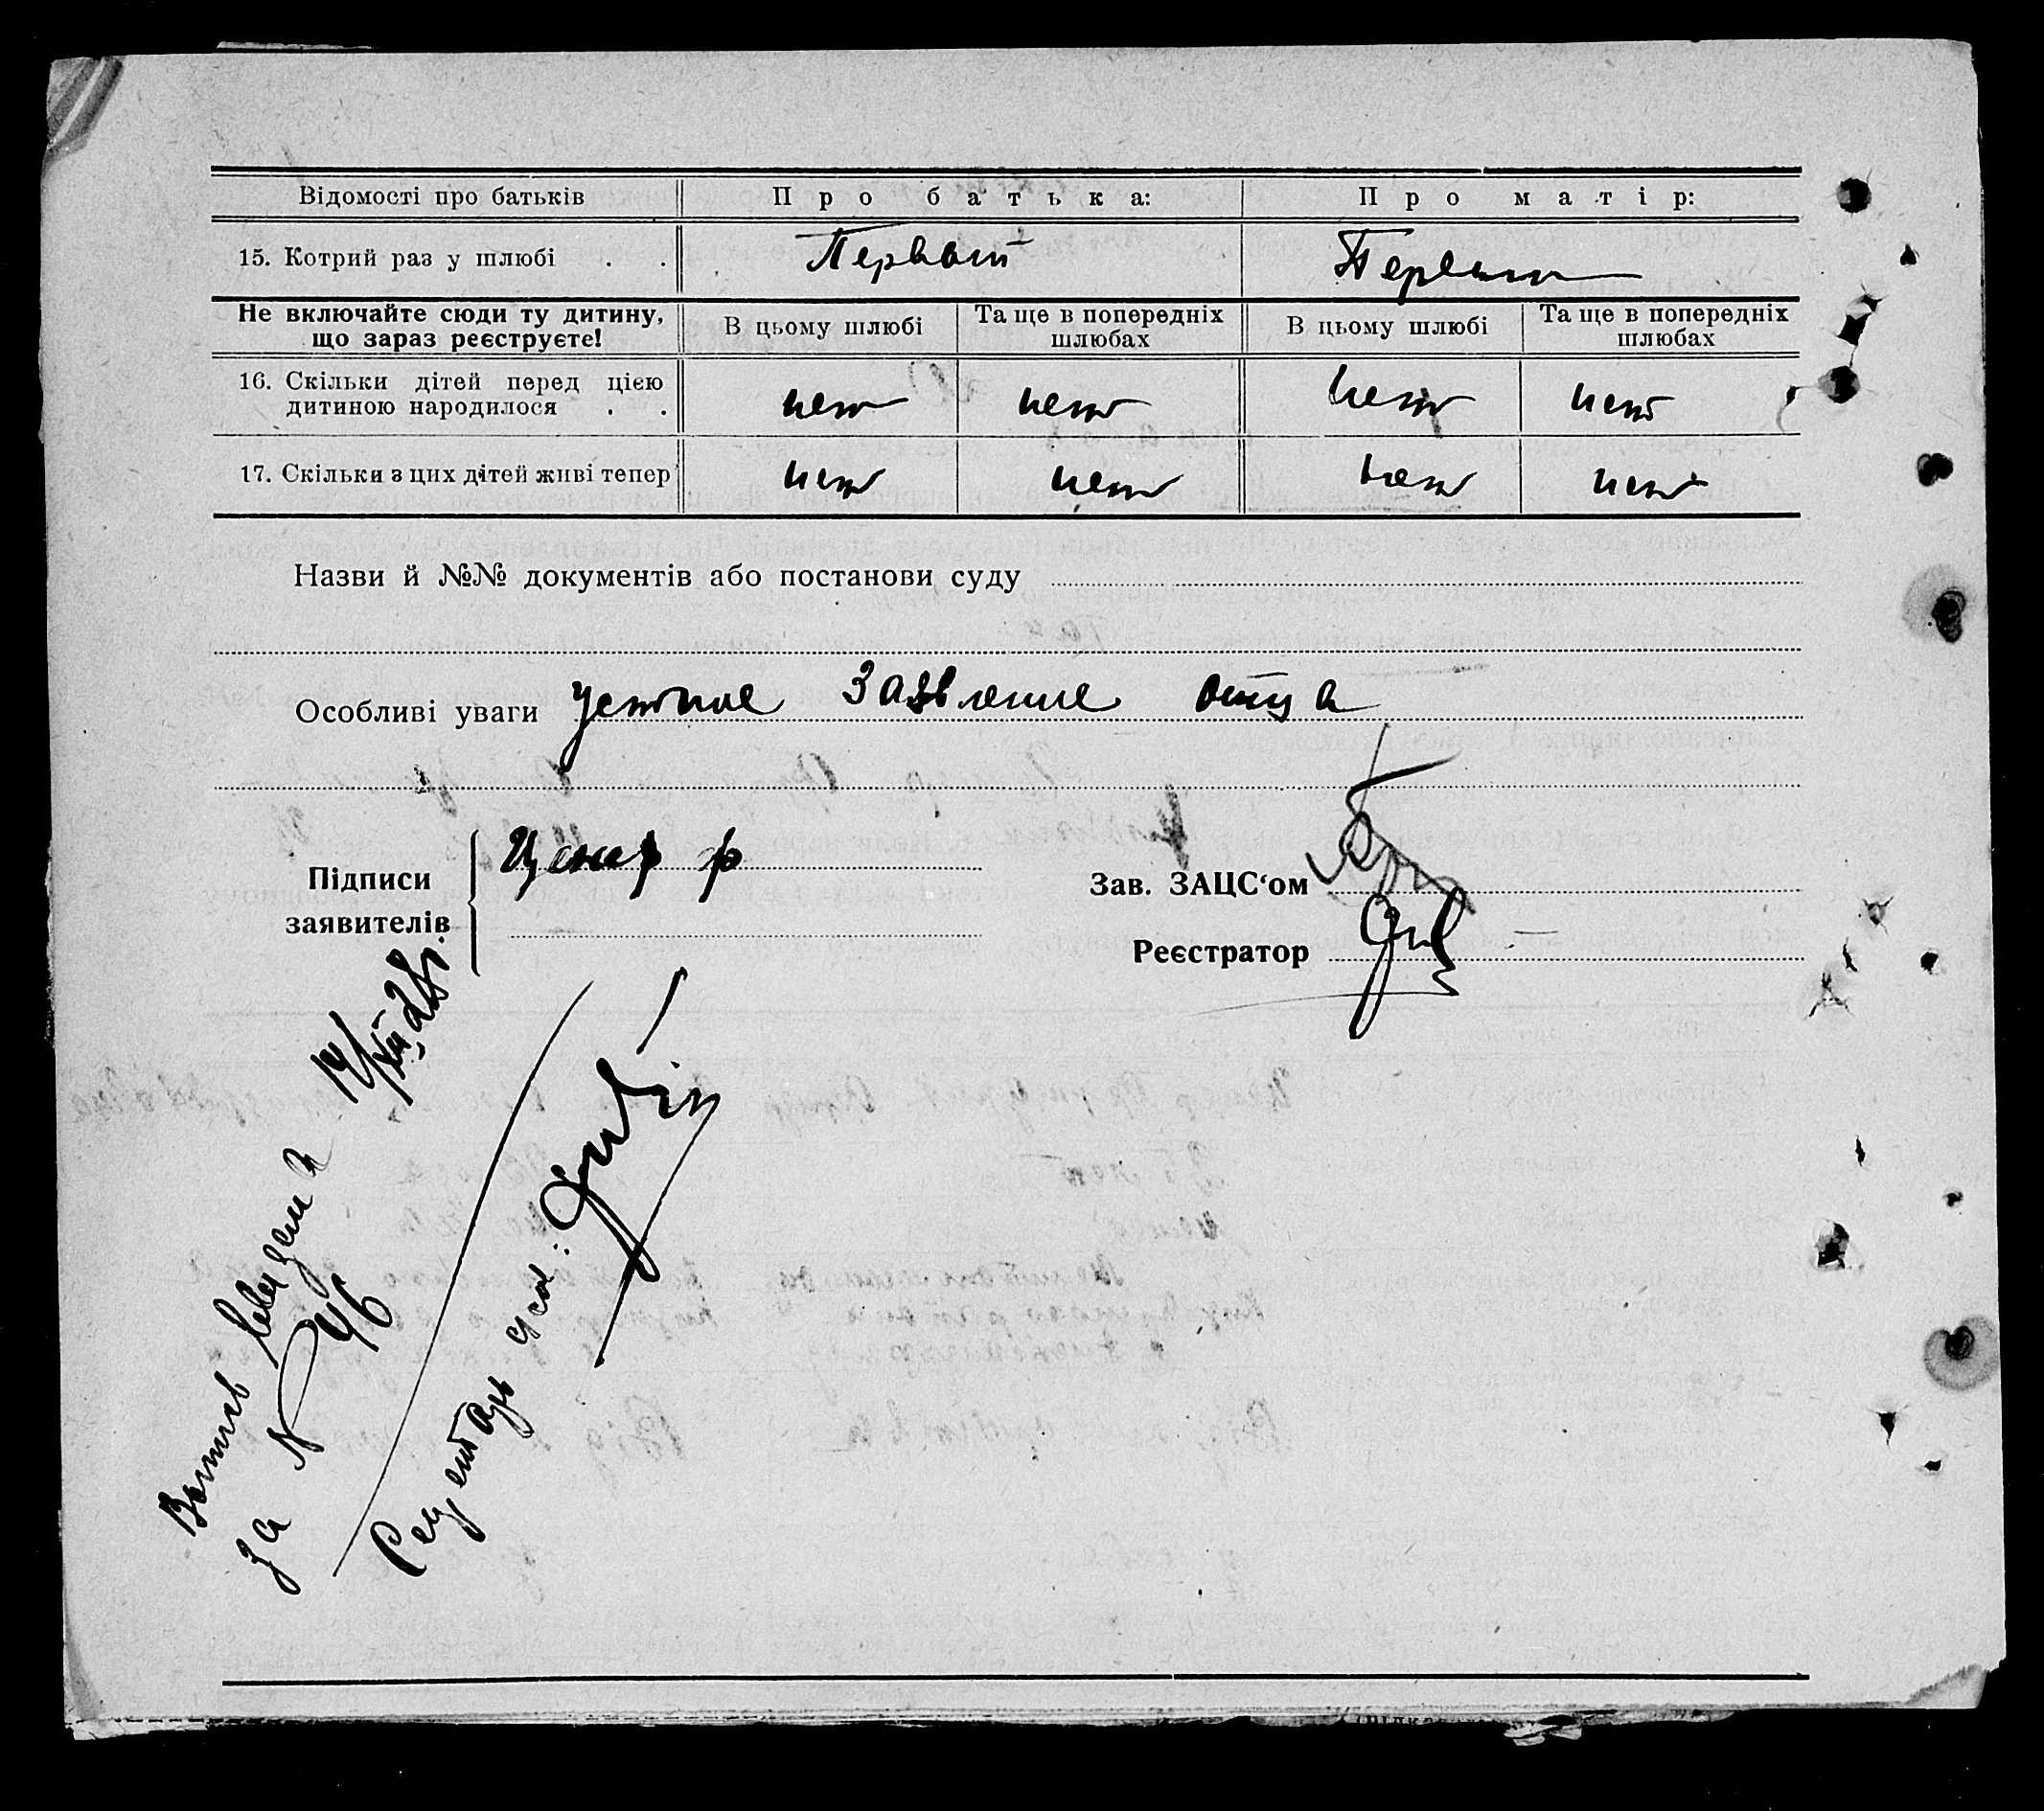 Відомості про батьків Про батька: Про матір:
15. Котрий раз у шлюбі . . Первый Первый
Не включайте сюди ту дитину, що зараз реєструєте! В цьому шлюбі Та ще в попередніх шлюбах В цьому шлюбі Та ще в попередніх шлюбах
16. Скільки дітей перед цією
дитиною народилося . . нет нет нет нет
17. Скільки з цих дітей живі тепер нет нет нет нет
Назви й №№ документів або постанови суду
Особливі уваги устное Заявление отца
Підписи
заявителів
Ценер Ф
Зав. ЗАЦС‘ом
Реєстратор
14/XII 28 г.
за № 46